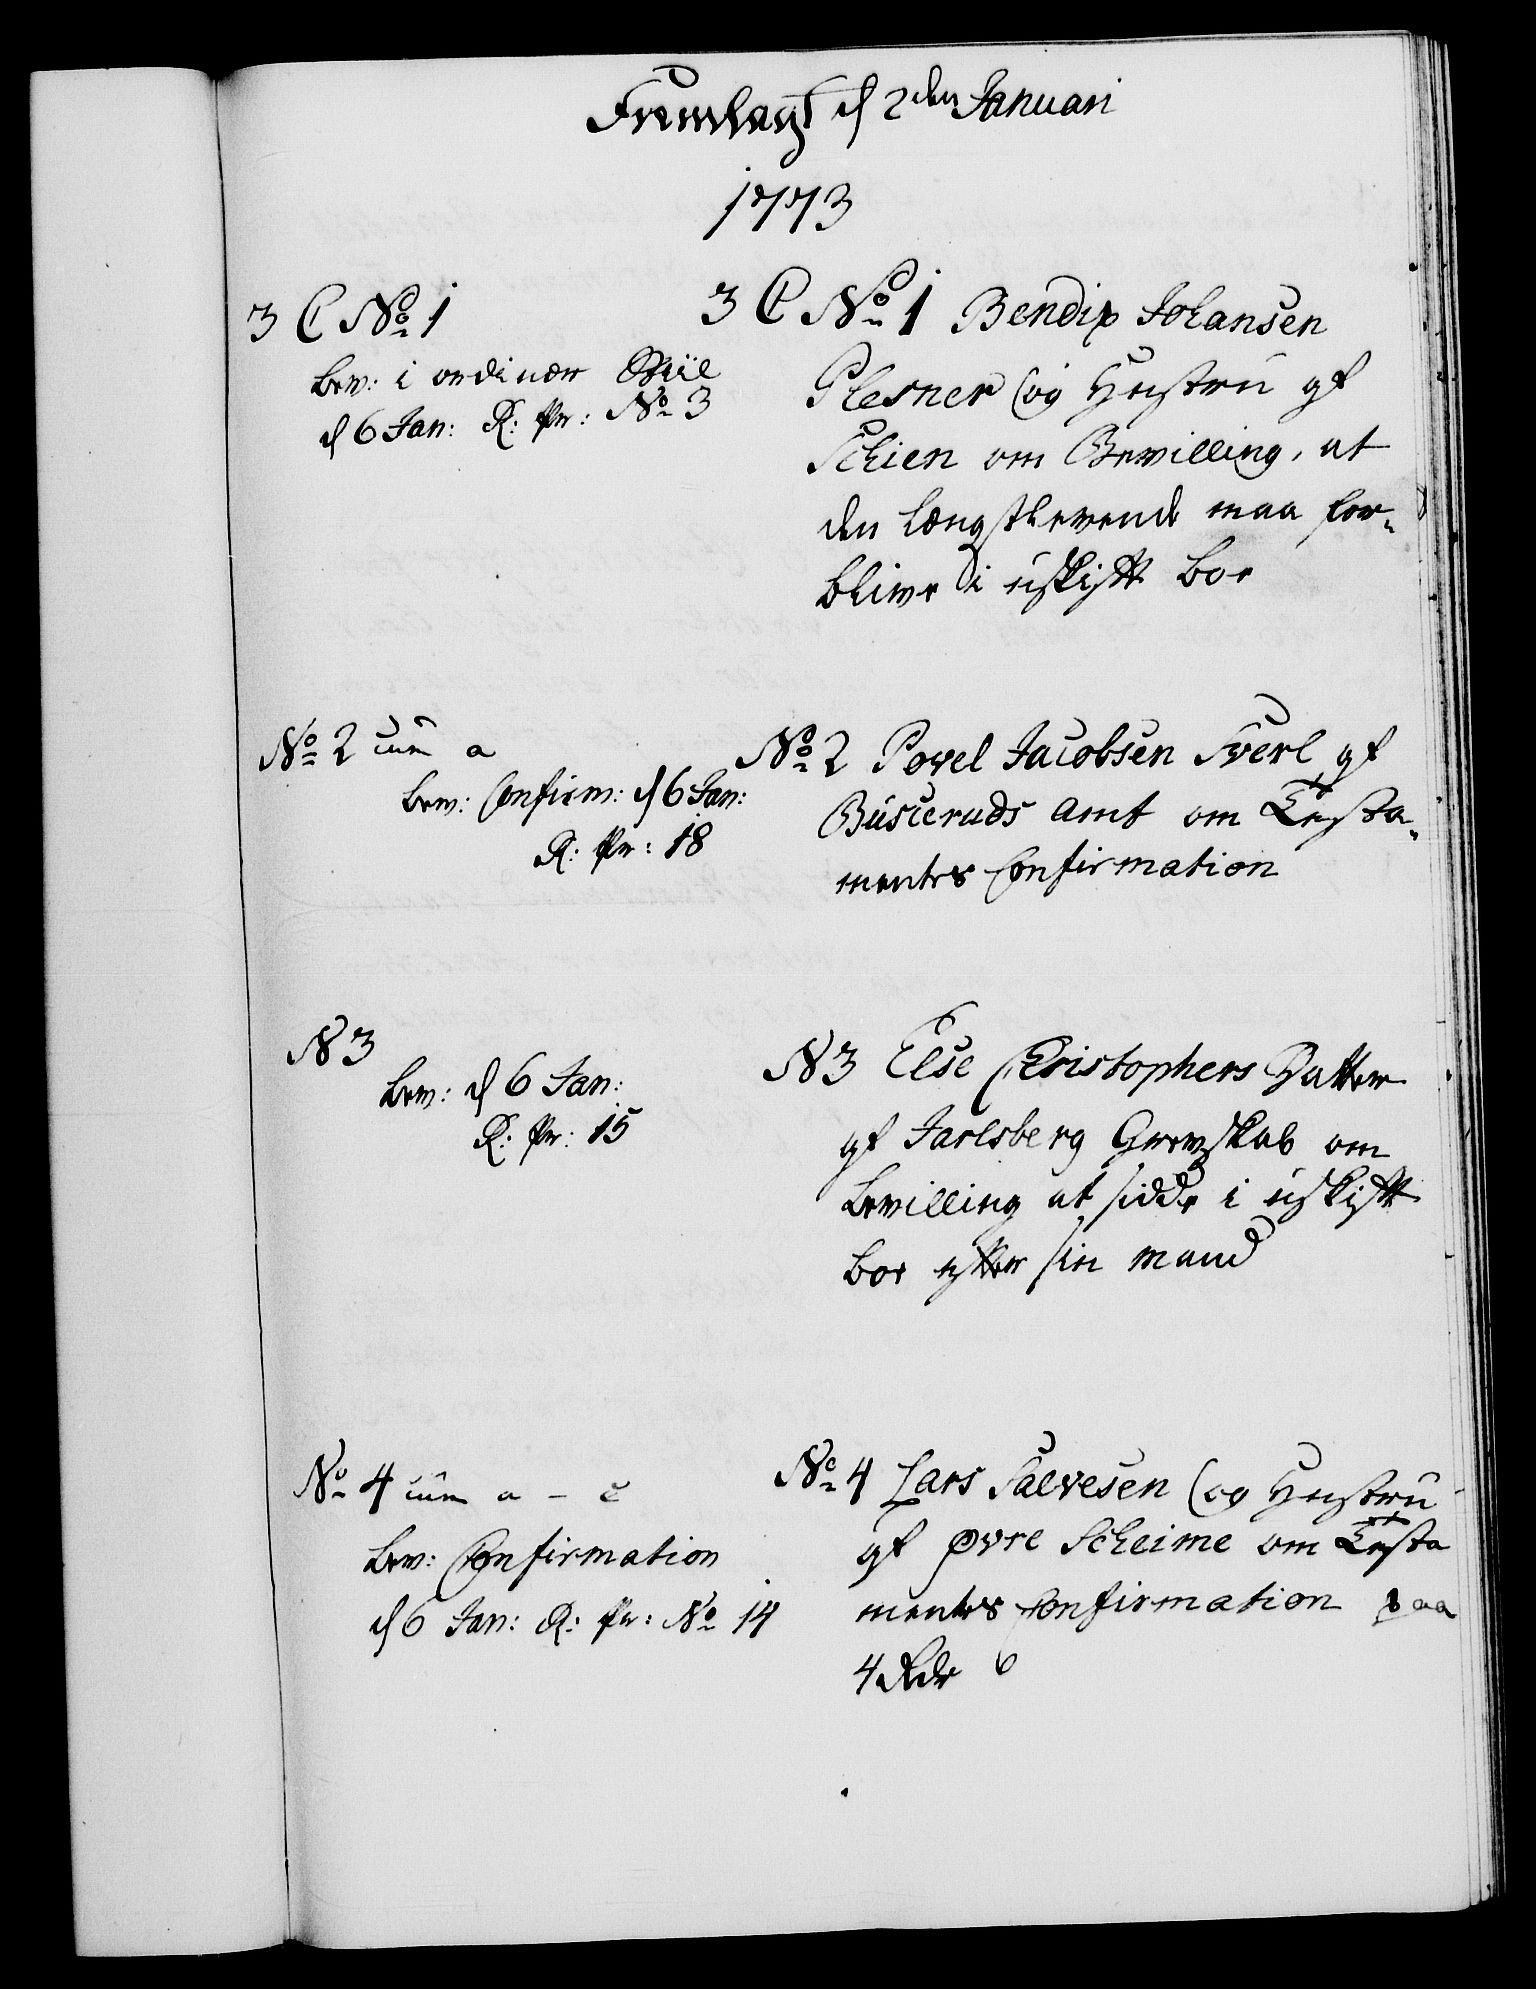 Fremlagt d 2den Januari
1773
3 C No 1
Bew: i ordinær Stiil
d 6 Jan: R: Pr: No 3
3 C No 1 Bendix Johansen
Plesner (og Hustru af
Schien om Bevilling, at
den længstlevende maa for-
blive i uskiftt Boe
No 2 cum a
Bew: Confirm: d 6 Jan:
R: Pr: 18
No 2 Povel Jacobsen af
Busceruds Amt om Testa-
mentes Confirmation
N 3
Bew: d 6 Jan:
R: Pr: 15
N 3 Else Christophers Datter
af Jarlsberg Grevskab om
Bevilling at sidde i uskiftt
Boe efter sin Mand
No 4 cum a – c
Bew: Confirmation
d 6 Jan: R: Pr: No 14
No 4 Lars Salvesen (og Hustru
af øvre Scheime om Testa
mentes Confirmation paa
4 Rdr 6